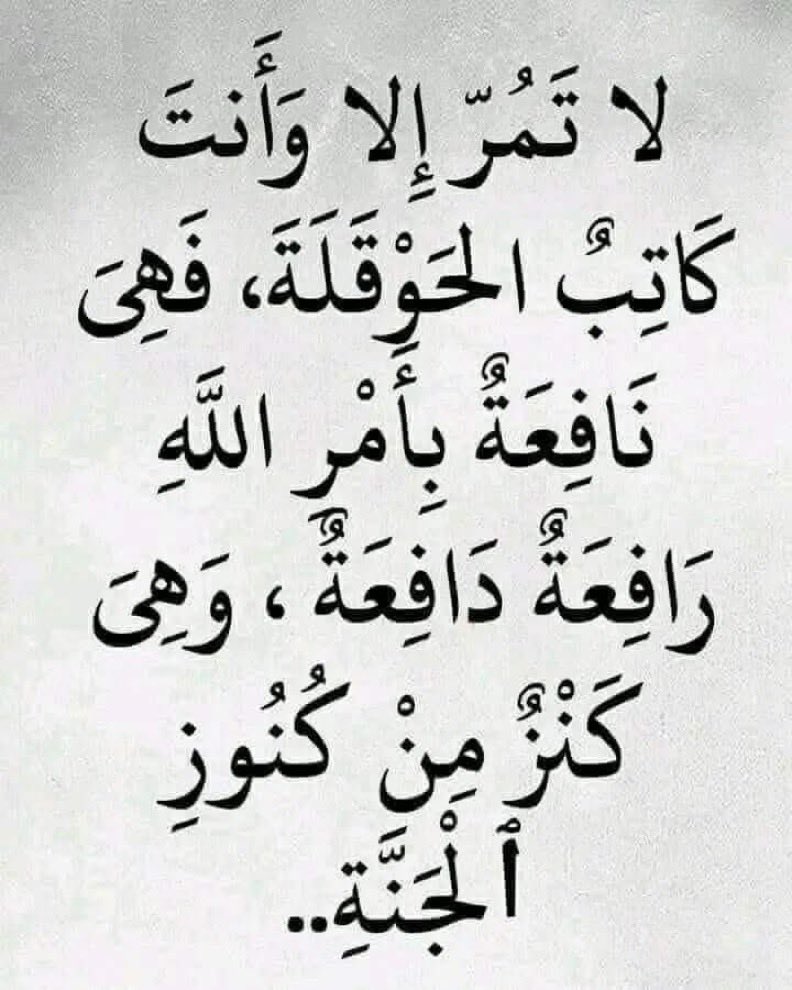 لا تَمُرّ إِلا وَأَنتَ
كَاتِبٌ الحَوْقَلَةَ، فَهِىَ
نَافِعَةٌ بِأَمْرِ اللَّهِ
رَافِعَةٌ دَافِعَةٌ ، وَهِىَ
كَنْزٌ مِنْ كُنُوزِ
ٱلْجَنَّةِ..